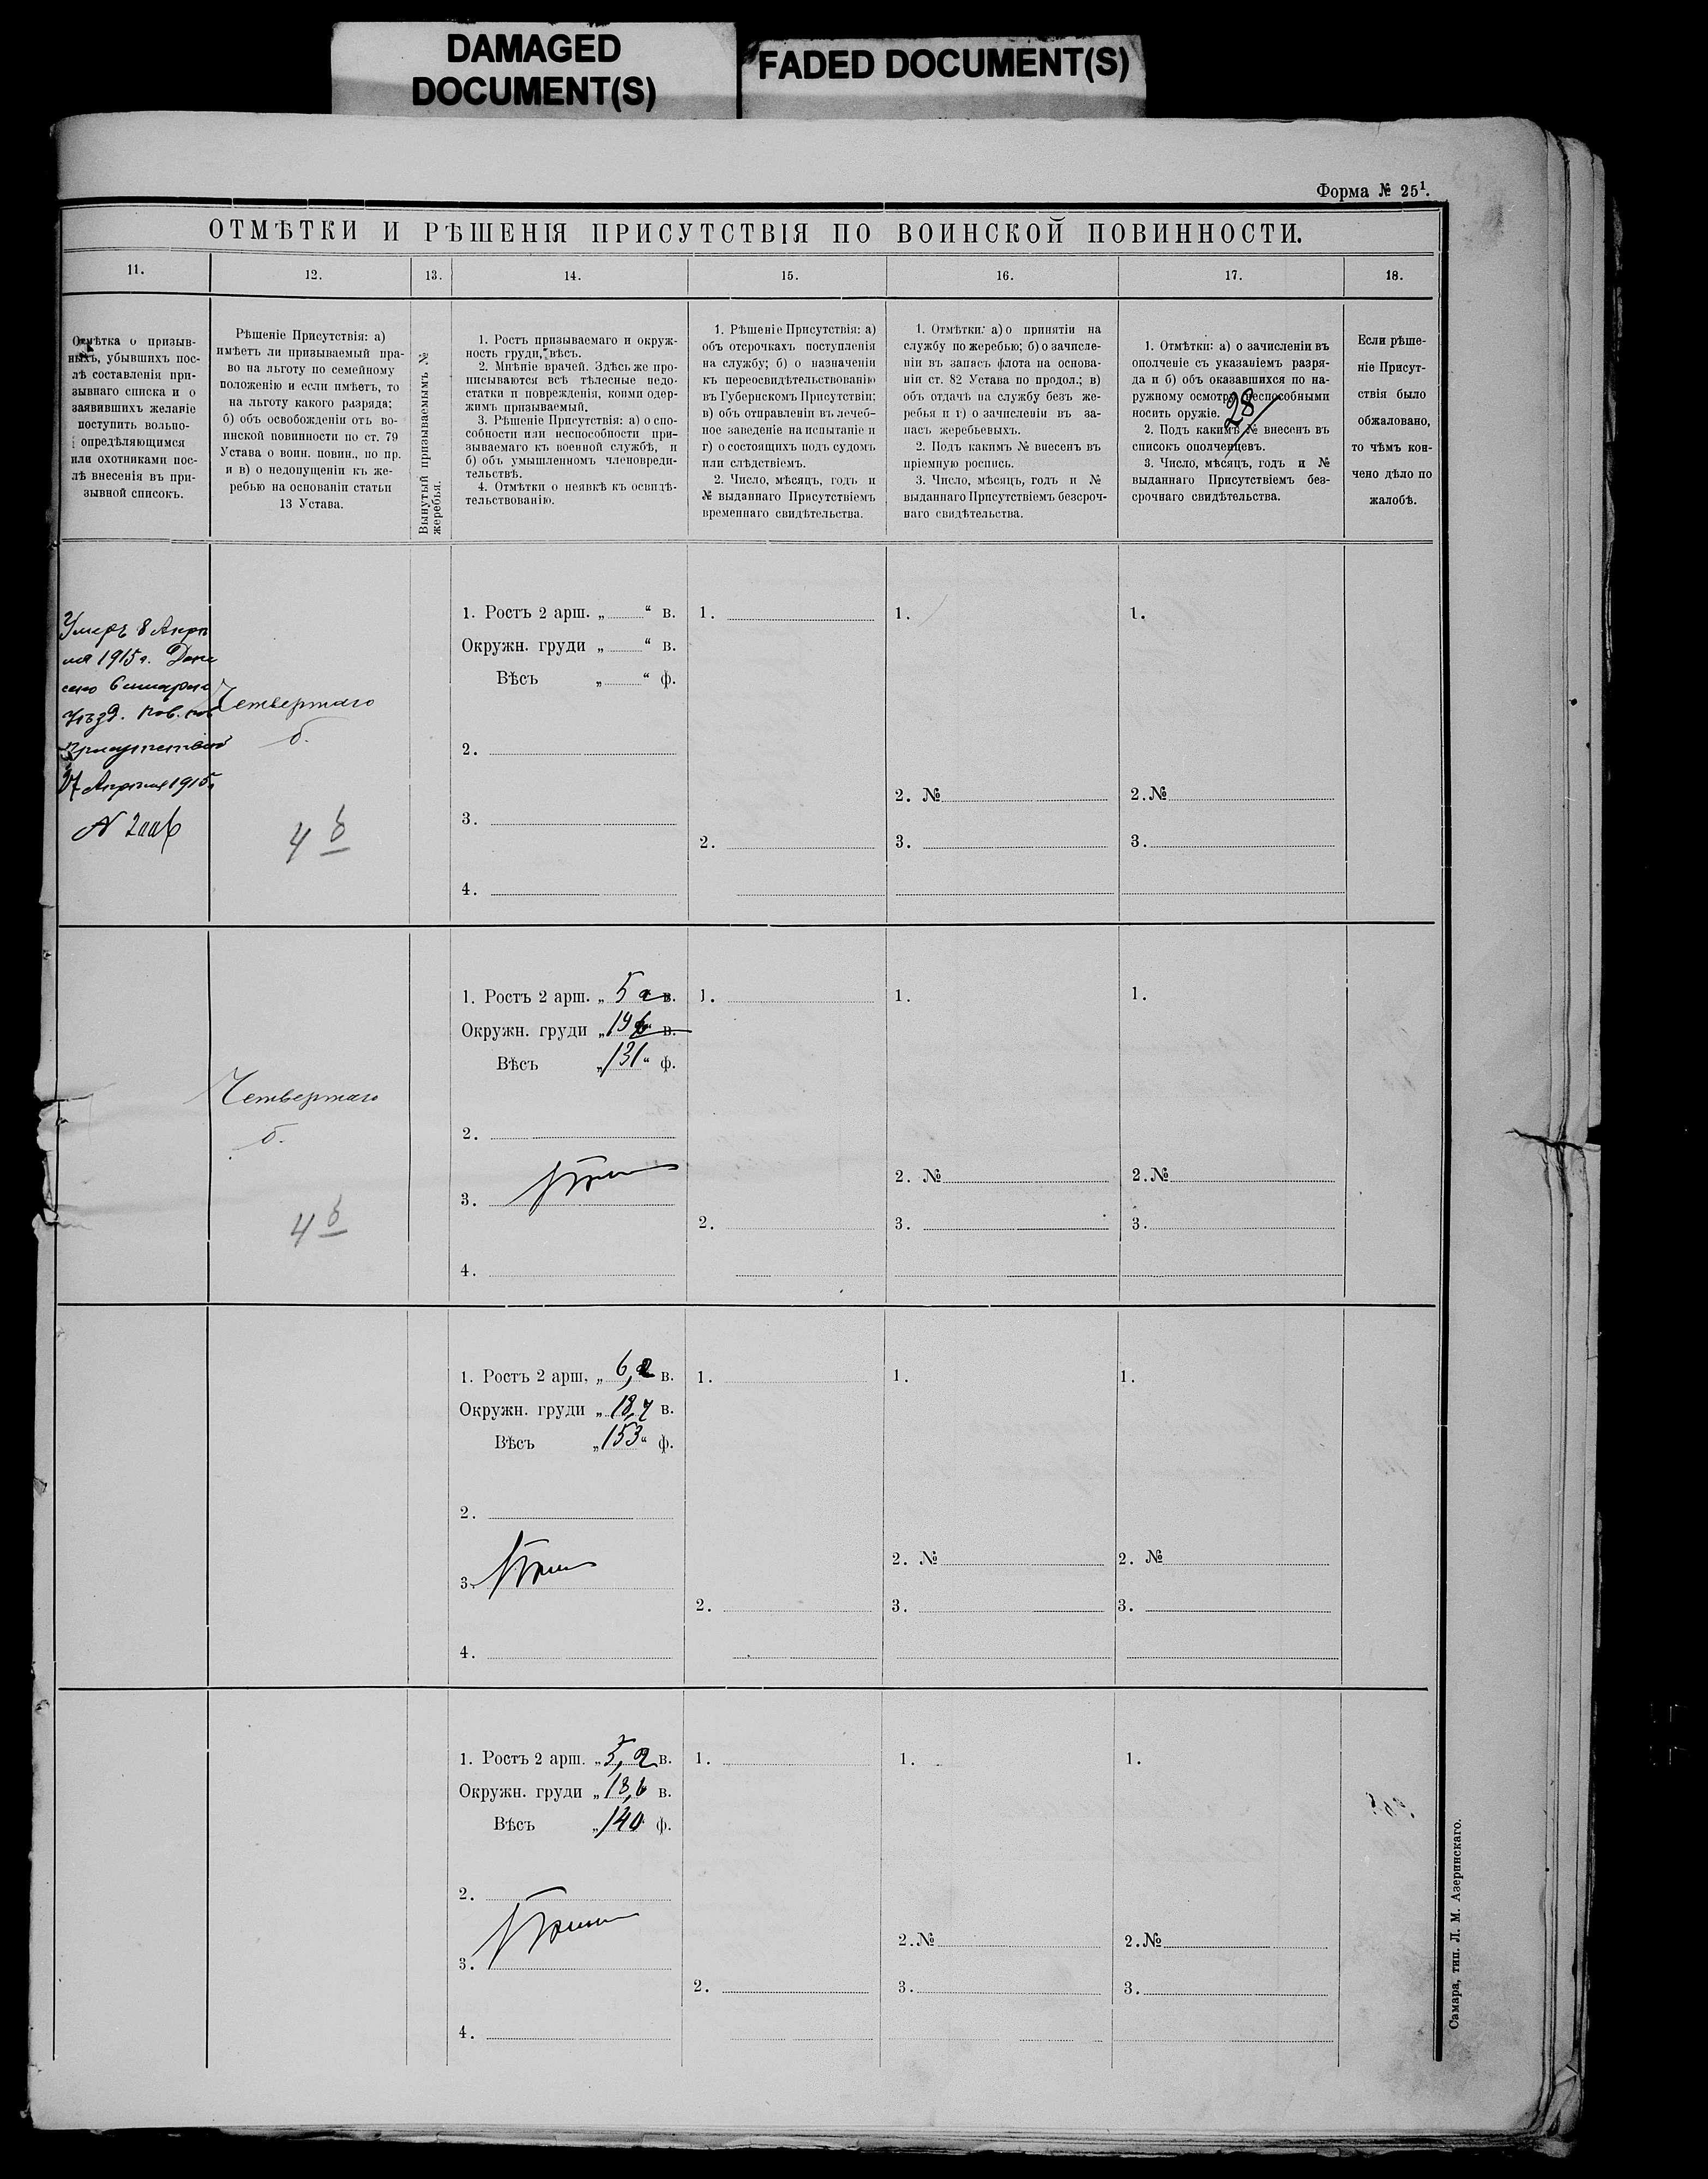 DAMAGED
DOCUMENT(S)
FADED DOCUMENT(S)
Форма № 25¹.
ОТМѢТКИ И РѢШЕНІЯ ПРИСУТСТВІЯ ПО ВОИНСКОЙ ПОВИННОСТИ.
11. 12. 13. 14. 15. 16. 17. 18.
Отмѣтка о призыв-
ныхъ, убывшихъ пос-
лѣ составленія при-
зывнаго списка и о
заявившихъ желаніе
поступить вольно-
опредѣляющимся
или охотниками пос-
лѣ внесенія въ при-
зывной списокъ.
Рѣшеніе Присутствія: а)
имѣетъ ли призываемый пра-
во на льготу по семейному
положенію и если имѣетъ, то
на льготу какого разряда;
б) объ освобожденіи отъ во-
инской повинности по ст. 79
Устава о воин. повин., по пр.
и в) о недопущеніи къ же-
ребью на основаніи статьи
13 Устава.
Вынутый призываемымъ №
жеребья.
1. Ростъ призываемаго и окруж-
ность груди, вѣсъ.
2. Мнѣніе врачей. Здѣсь же про-
писываются всѣ тѣлесные недо-
статки и поврежденія, коими одер-
жимъ призываемый.
3. Рѣшеніе Присутствія: а) о спо-
собности или неспособности при-
зываемаго къ военной службѣ, и
б) объ умышленномъ членовреди-
тельствѣ.
4. Отмѣтки о неявкѣ къ освидѣ-
тельствованію.
1. Рѣшеніе Присутствія: а)
объ отсрочкахъ поступленія
на службу; б) о назначеніи
къ переосвидѣтельствованію
въ Губернскомъ Присутствіи;
в) объ отправленіи въ лечеб-
ное заведеніе на испытаніе и
г) о состоящихъ подъ судомъ
или слѣдствіемъ.
2. Число, мѣсяцъ, годъ и
№ выданнаго Присутствіемъ
временнаго свидѣтельства.
1. Отмѣтки: а) о принятіи на
службу по жеребью; б) о зачисле-
ніи въ запасъ флота на основа-
ніи ст. 82 Устава по продол.; в)
объ отдачѣ на службу безъ же-
ребья и г) о зачисленіи въ за-
пасъ жеребьевыхъ.
2. Подъ какимъ № внесенъ въ
пріемную роспись.
3. Число, мѣсяцъ, годъ и №
выданнаго Присутствіемъ безсроч-
наго свидѣтельства.
1. Отмѣтки: а) о зачисленіи въ
ополченіе съ указаніемъ разря-
да и б) объ оказавшихся по на-
ружному осмотру неспособными
носить оружіе.
2. Подъ какимъ № внесенъ въ
списокъ ополченцевъ.
3. Число, мѣсяцъ, годъ и №
выданнаго Присутствіемъ без-
срочнаго свидѣтельства.
28
Если рѣше-
ніе Присут-
ствія было
обжаловано,
то чѣмъ кон-
чено дѣло по
жалобѣ.
Умеръ 8 Апрѣ
ля 1915 г. Доне
сено
Уѣзд. по в. пов
Присутствію
Апрѣля 1915 г.
Четвертаго
б.
4 б
1. Ростъ 2 арш. „ “ в.
Окружн. груди „ “ в.
Вѣсъ „ “ ф.
2.
3.
4.
1.
2.
1.
2. №
3.
1.
2. №
3.
Четвертаго
б.
4 б
1. Ростъ 2 арш. „ 5 в.
Окружн. груди „ 19 в.
Вѣсъ „ 131 “ ф.
2.
3.
4.
1.
2.
1.
2. №
3.
1.
2. №
3.
1. Ростъ 2 арш. „ 6,2 в.
Окружн. груди „ 18,4 в.
Вѣсъ „ 153 “ ф.
2.
3.
4.
1.
2.
1.
2. №
3.
1.
2. №
3.
1. Ростъ 2 арш. „ 5,2 в.
Окружн. груди „ 18,6 в.
Вѣсъ „ 140 ф.
2.
3.
4.
1.
2.
1.
2. №
3.
1.
2. №
3.
Самара, тип. Л. М. Азеринскаго.